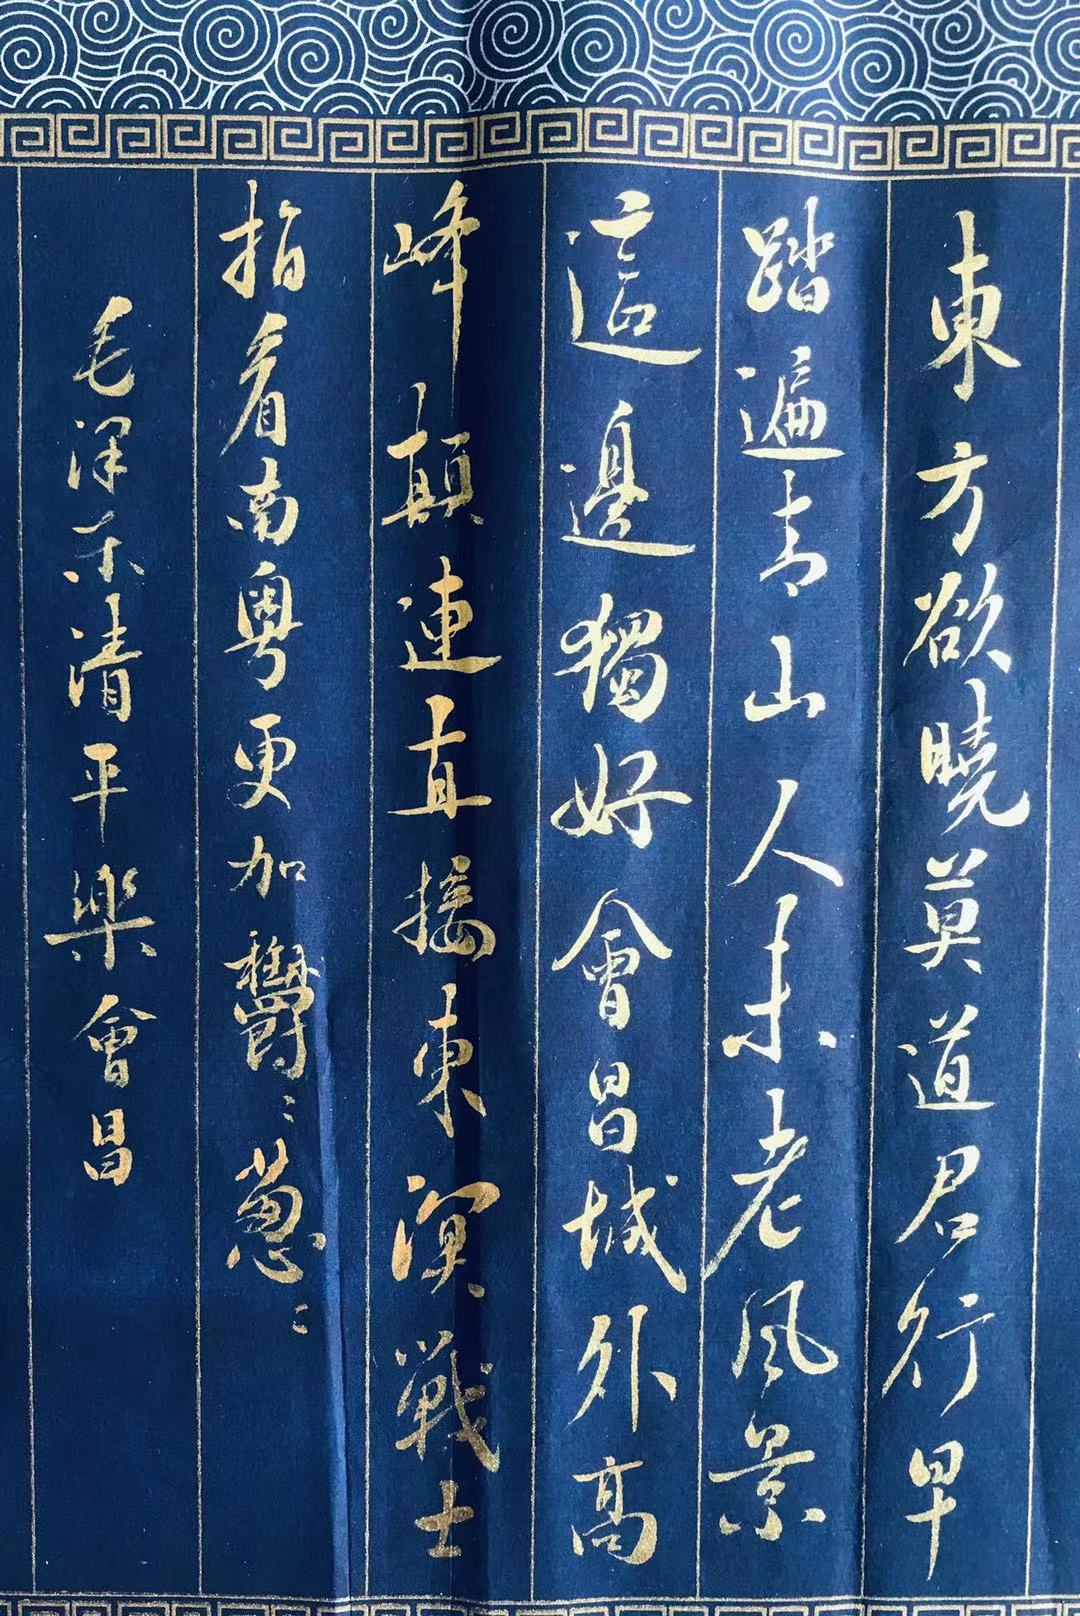 東方欲曉莫道君行早
踏遍青山人未老風景
這邊獨好會昌城外高
峰顛連直接東溟戰士
指看南粵更加鬱〻葱〻
毛澤东清平樂會昌